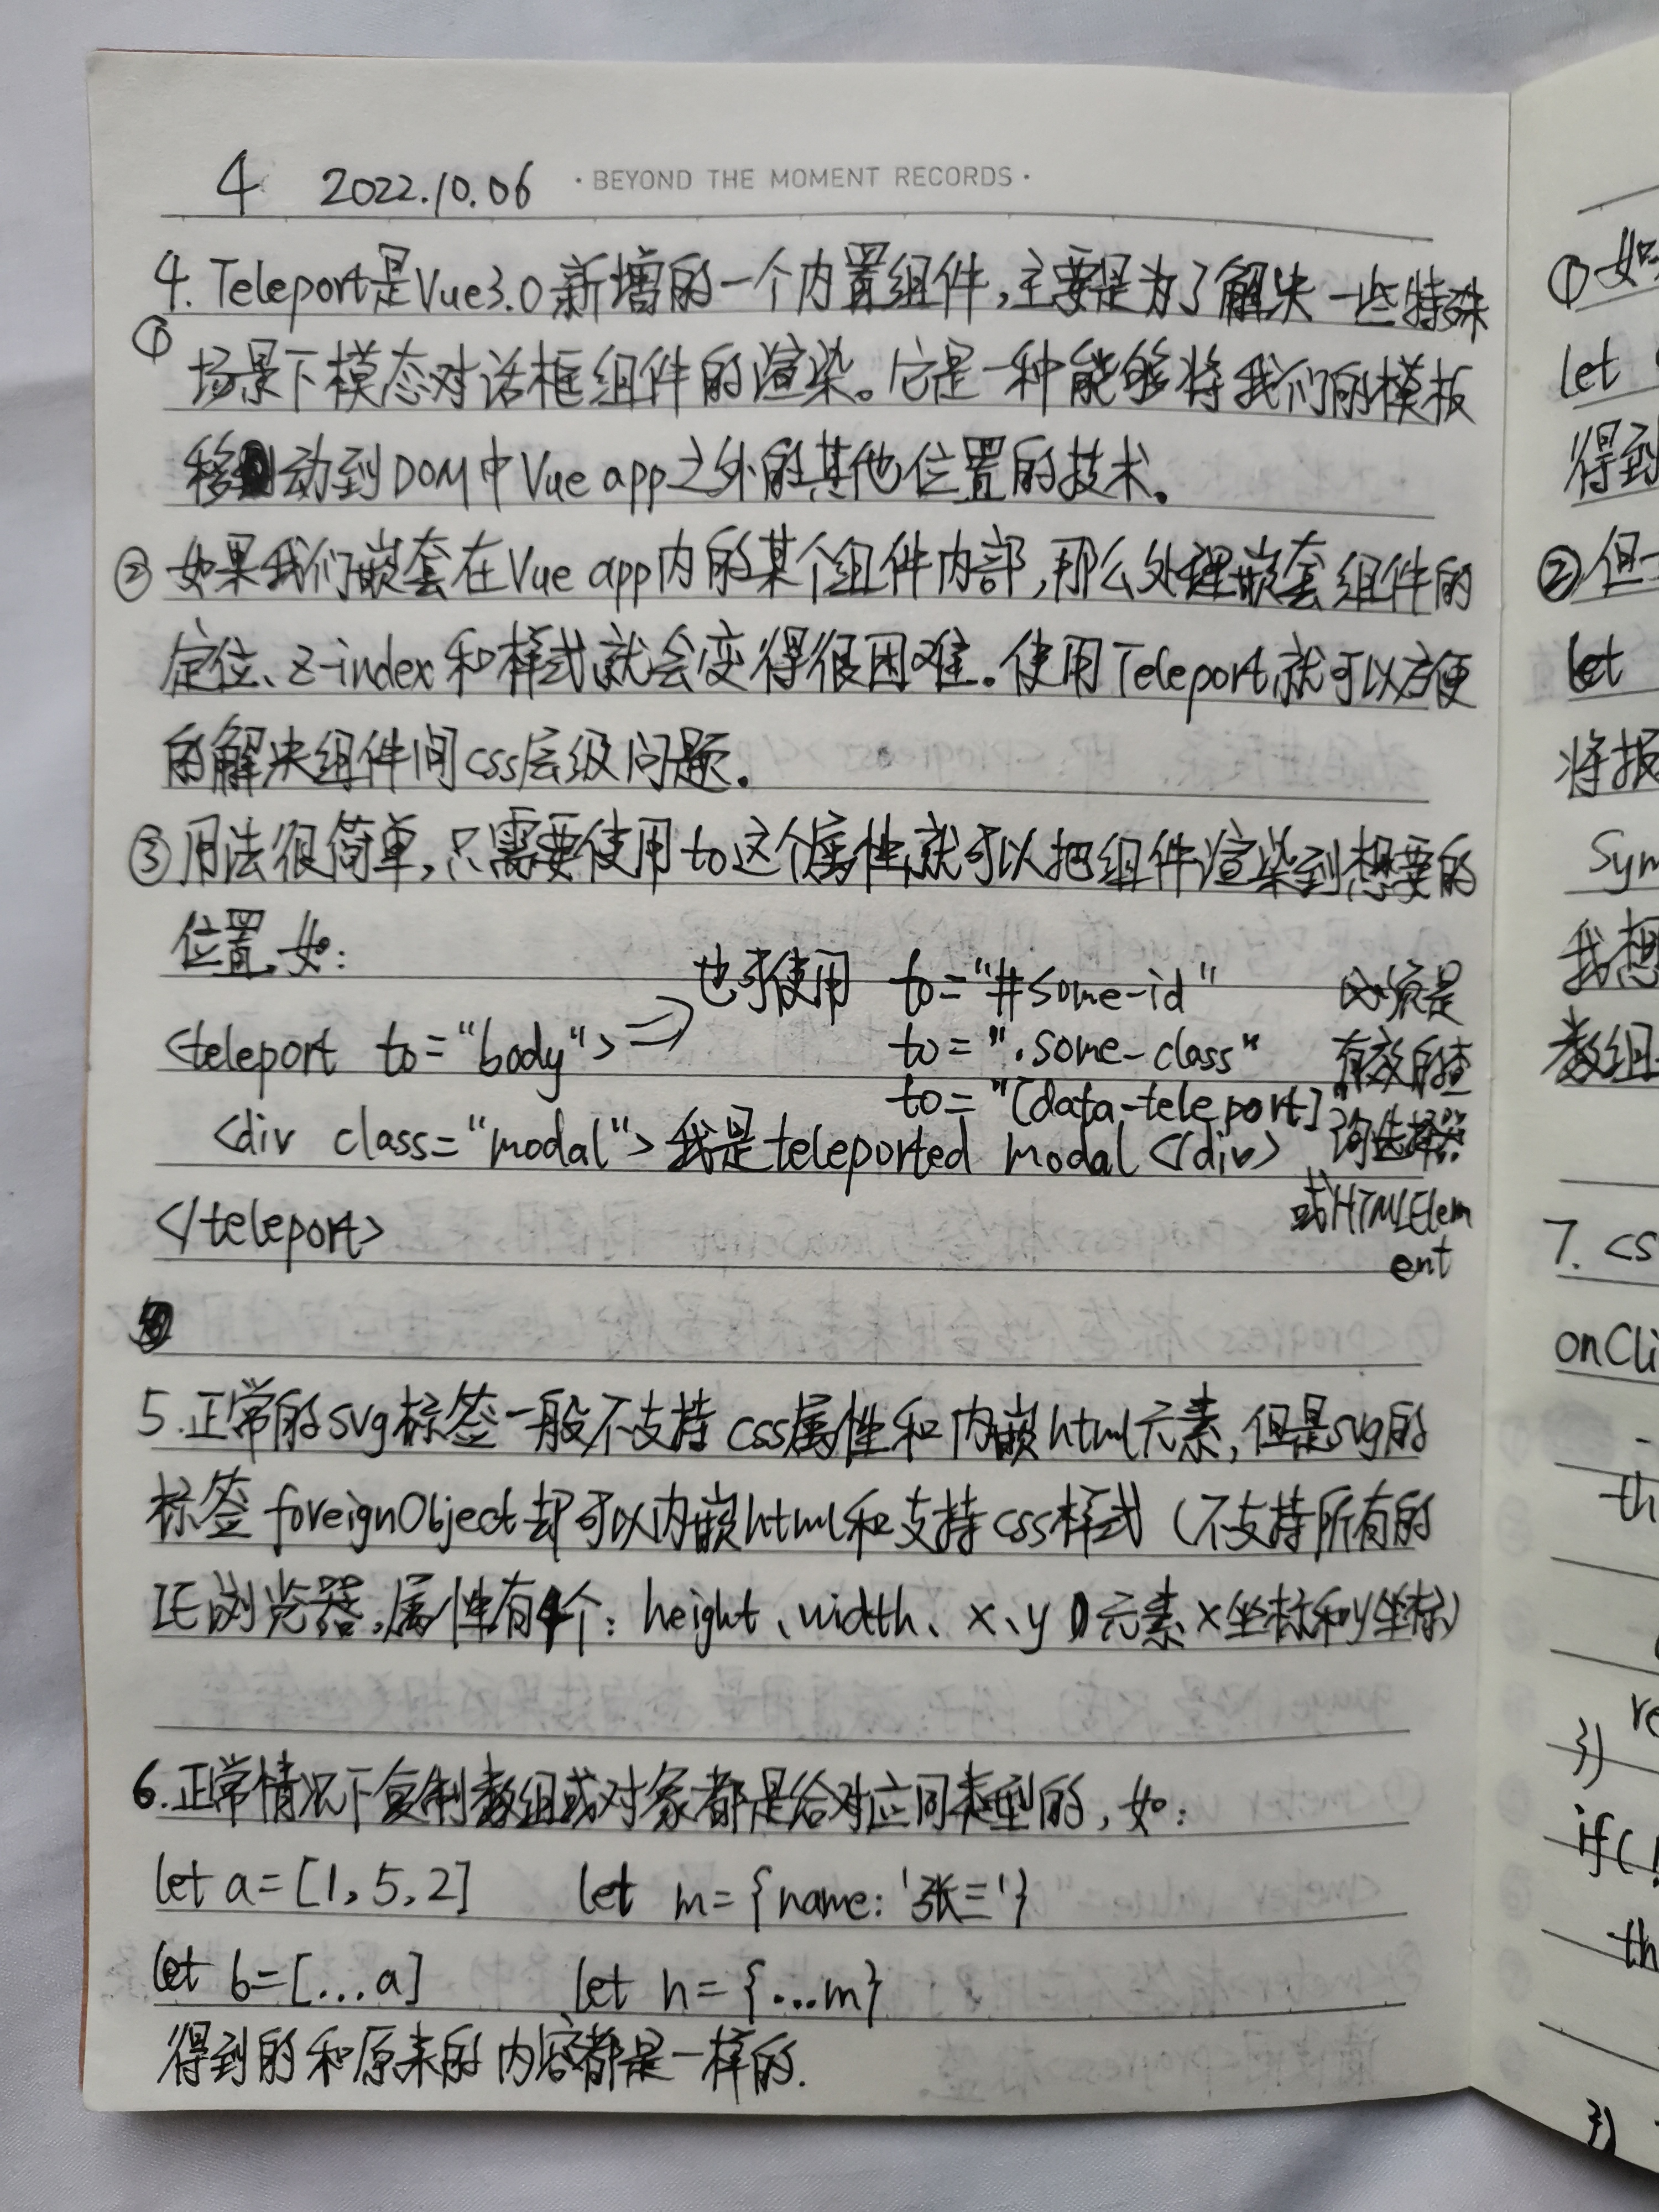 4 2022.10.06 · BEYOND THE MOMENT RECORDS ·
4. Teleport是Vue3.0新增的一个内置组件,主要是为了解决一些特殊
① 场景下模态对话框组件的渲染。它是一种能够将我们的模板
移动到DOM中Vue app之外的其他位置的技术。
② 如果我们嵌套在Vue app内的某个组件内部,那么处理嵌套组件的
定位、z-index和样式就会变得很困难。使用Teleport就可以方便
的解决组件间css层级问题。
③ 用法很简单,只需要使用to这个属性就可以把组件渲染到想要的
位置,如:
<teleport to="body"> => 也可使用 to="#some-id"
to=".some-class"
to="[data-teleport]"
必须是
有效的查
询选择器
或HTMLElem
ent
<div class="modal">我是teleported modal</div>
</teleport>
5.正常的svg标签一般不支持css属性和内嵌html元素,但是svg的
标签foreignObject却可以内嵌html和支持css样式(不支持所有的
IE浏览器,属性有4个:height、width、x、y 元素x坐标和y坐标)
6.正常情况下复制数组或对象都是给对应同类型的,如:
let a=[1,5,2] let m={name:'张三'}
let b=[...a] let n={...m}
得到的和原来的内容都是一样的.
① 如
let
得到
② 但
let
将报
Sym
我想
数组
7. <s
onCli
th
re
})
if(!
th
})